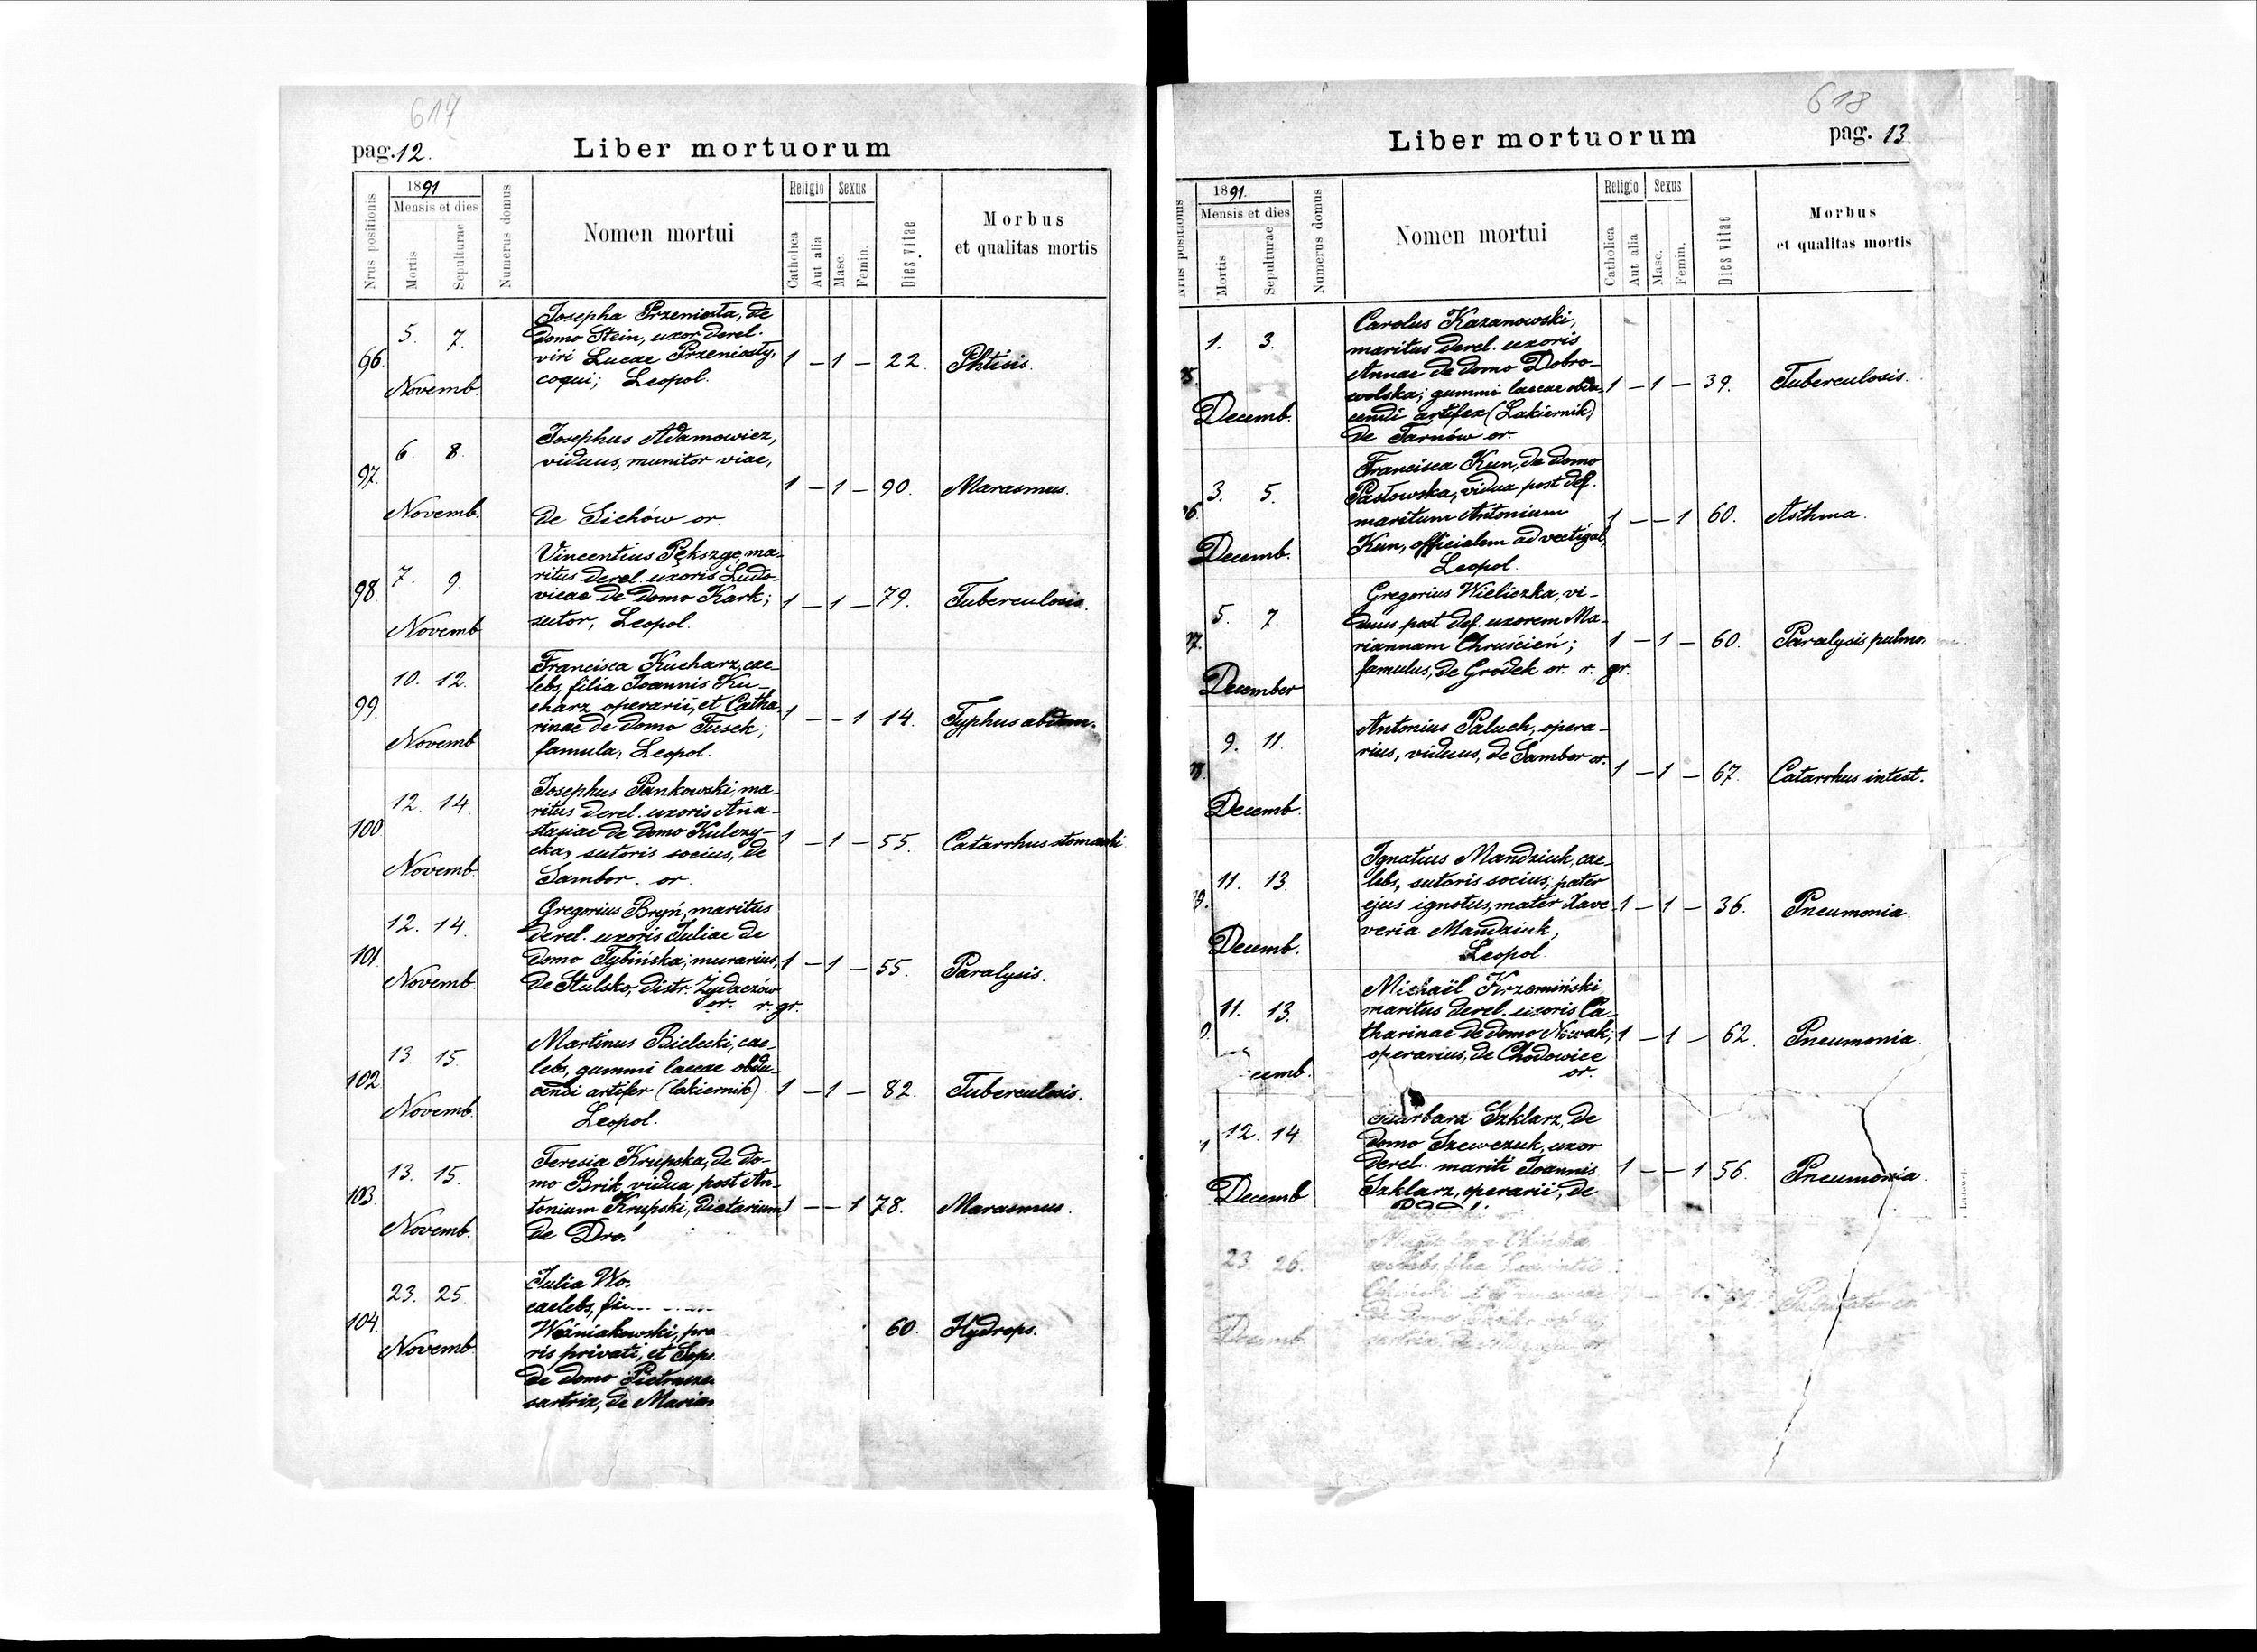 617
pag. 12. Liber mortuorum
Nrus positionis
1891
Mensis et dies
Mortis
Sepulturae
Numerus domus
Nomen mortui
Religio
Catholica
Aut alia
Sexus
Masc.
Femin.
Dies vitae
Morbus
et qualitas mortis
96. 5. 7. Novemb.
Josepha Przeniosła, de
domo Stein, uxor derel.
viri Lucae Przeniosły,
coqui; Leopol.
1 – 1 – 22. Phtisis.
97. 6. 8. Novemb.
Josephus Adamowicz,
viduus, munitor viae,
de Sichów or.
1 – 1 – 90. Marasmus.
98. 7. 9. Novemb
Vincentius Pększyc, ma-
ritus derel. uxoris Ludo-
vicae de domo Kark;
sutor, Leopol.
1 – 1 – 79. Tuberculosis.
99. 10. 12. Novemb
Francisca Kucharz, cae-
lebs, filia Joannis Ku-
charz operarii, et Catha-
rinae de domo Tusek;
famula, Leopol.
1 – – 1 14. Typhus abdom.
100 12. 14. Novemb.
Josephus Pankowski, ma-
ritus derel. uxoris Ana-
stasiae de domo Kulczy-
cka, sutoris socius, de
Sambor. or.
1 – 1 – 55. Catarrhus stomachi
101 12. 14. Novemb.
Gregorius Bryń, maritus
derel. uxoris Juliae de
domo Tybińska; murarius,
de Stulsko, distr. Żydaczów
or. r. gr.
1 – 1 – 55. Paralysis.
102 13. 15. Novemb.
Martinus Bielecki, cae-
lebs, gummi laccae obdu-
cendi artifex (lakiernik).
Leopol.
1 – 1 – 82. Tuberculosis.
103 13. 15. Novemb.
Teresia Krupska, de do-
mo Brik, vidua post An-
tonium Krupski, dietarium
de Dro
1 – – 1 78. Marasmus.
104. 23. 25. Novemb
Julia Wo
caelebs,
Woźniakowski, pra
ris privati, et Soph
de domo Pietrasze
sartrix, de Marian
60. Hydrops.
618
Liber mortuorum pag. 13
Nrus positionis
1891.
Mensis et dies
Mortis
Sepulturae
Numerus domus
Nomen mortui
Religio
Catholica
Aut alia
Sexus
Masc.
Femin.
Dies vitae
Morbus
et qualitas mortis
5. 1. 3. Decemb.
Carolus Kazanowski,
maritus derel. uxoris
Annae de domo Dobro-
wolska; gummi laccae obdu-
cendi artifex (Lakiernik)
de Tarnów or.
1 – 1 – 39. Tuberculosis.
6. 3. 5. Decemb.
Francisca Kun, de domo
Pasłowska, vidua post def.
maritum Antonium
Kun, officialem ad vectigal,
Leopol.
1 – – 1 60. Asthma.
7. 5. 7. December
Gregorius Wieliczka, vi-
duus post def. uxorem Ma-
riannam Chruścień;
famulus, de Gródek or. r. gr.
1 – 1 – 60. Paralysis pulmo.
8. 9. 11. Decemb.
Antonius Paluch, opera-
rius, viduus, de Sambor or.
1 – 1 – 67. Catarrhus intest.
9. 11. 13. Decemb.
Ignatius Mandziuk, cae-
lebs, sutoris socius; pater
ejus ignotus, mater Xave-
veria Mandziuk,
Leopol.
1 – 1 – 36. Pneumonia.
11. 13. cemb.
Michaël Krzemiński
maritus derel. uxoris Ca-
tharinae de domo Nowak;
operarius, de Chodowice
or.
1 – 1 – 62. Pneumonia.
12. 14 Decemb
Barbara Szklarz, de
domo Szewczuk, uxor
derel. mariti Joannis
Szklarz, operarii, de
1 – – 1 56. Pneumonia.
23. 26. Decemb.